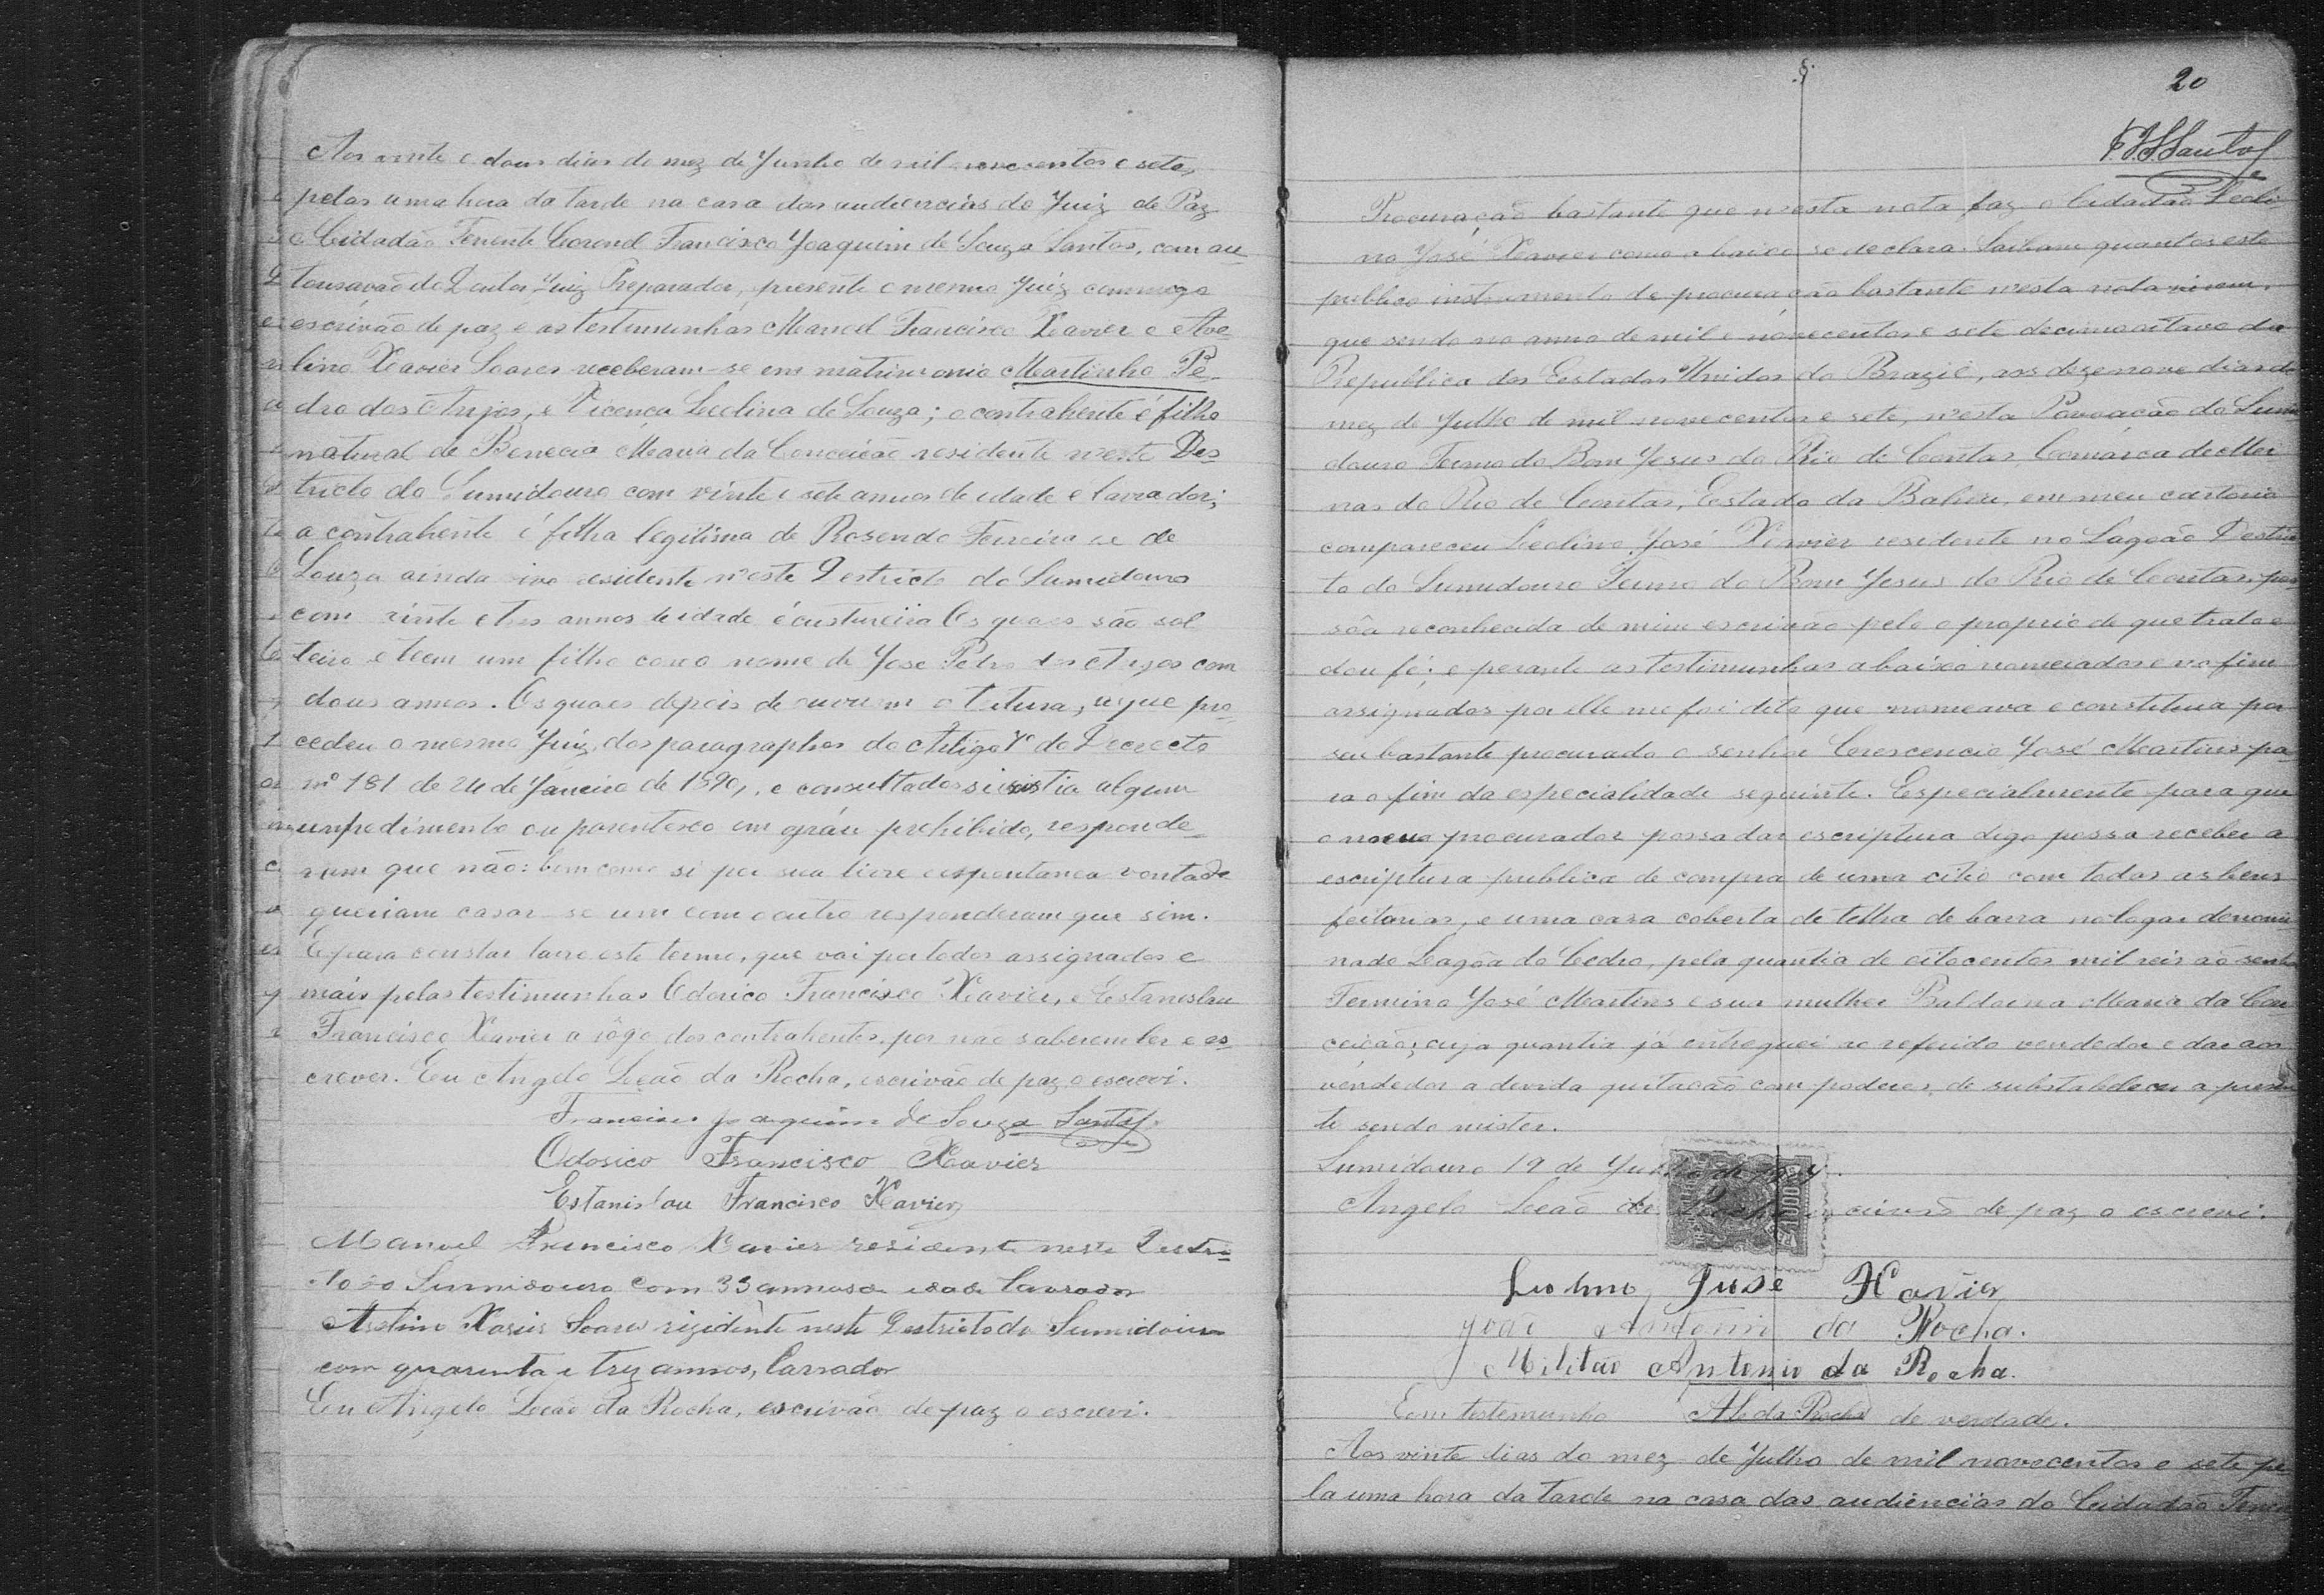 Aos vinte e dous dias do mez de Junho de mil novecentos e sete,
pelas uma hora da tarde na casa das audiencias do Juiz de Paz
o Cidadão Tenente Coronel Francisco Joaquim de Souza Santos, com au
tourisação do Doutor Juiz Preparador, presente o mesmo Juiz commigo
escrivão de paz e as testimunhas Manoel Francisco Xavier e Ave
lino Xavier Soares receberam-se em matrimonio Martinho Pe-
dro dos Anjos, e Vicença Leolina de Souza; o contrahente é filho
natural de Benecia Maria da Conceicão residente neste Des
tricto do Sumidouro com vinte e sete annos de idade e lavrador;
a contrahente é filha legitima de Rosendo Ferreira de
Souza ainda vivo residente n'este Destricto do Sumidouro
com vinte e tres annos de idade é custureira Os quaes são sol
teiro e teem um filho com o nome de José Pedro dos Anjos com
dous annos. Os quaes depois de ouvirem a leitura, a que pro-
cedeu o mesmo Juiz, dos paragraphos do Artigo 7º do Decrecto
nº 181 de 24 de Janeiro de 1890, e consultados si existia algum
impedimento ou parentesco em gráu prohibido, responde-
ram que não: bem como si por sua livre e espontanea vontade
queriam casar-se um com outro responderam que sim.
E para constar lavro este termo, que vai por todos assignados e
mais pelas testimunhas Odorico Francisco Xavier, e Estanislau
Francisco Xavier a rôgo dos contrahentes, por não saberem ler e es-
crever. Eu Angelo Leção da Rocha, escrivão de paz o escrevi.
Francisco Joaquim de Souza Santos
Odorico Francisco Xavier
Estanislau Francisco Xavier
Manoel Francisco Xavier residente neste Destri-
to do Sumidouro com 33 annos de idade lavrador
Avelino Xavier Soares rizidente neste Destricto do Sumidouro
com quarenta e trez annos, Larrador
Eu Angelo Leção da Rocha, escrivão de paz o escrevi.
20
FJSSantos
Procuração bastante que n'esta nota faz o Cidadão Leoli-
no José Xavier como abaixo se declara. Saibam quantos este
publico instrumento de procuração bastante n'esta nota virem,
que sendo no anno de mil e novecentos e sete decimo oitavo da
Republica dos Eestados Unidos do Brazil, aos dezenove dias do
mez de Julho de mil novecentos e sete, n'esta Povoação do Sumi
douro Termo do Bom Jesus do Rio de Contas, Comarca de Mi
nas do Rio de Contas, Eestado da Bahia, em meu cartorio
compareceu Leolino José Xavier residente no Lagoão Destric
to do Sumidouro Termo do Bom Jesus do Rio de Contas, pes
sôa reconhecida de mim escrivão pelo o proprio de que trato e
dou fé; e perante as testimunhas abaixo nomeiadas e no fim
assignados por elle me foi dito que nomeava e constituia por
seu bastante procurado o senhor Crescencio José Martins pa-
ra o fim da especialidade seguinte. Especialmente para que
o procurador possa dar escriptura digo possa receber a
escriptura publica de compra de uma citio com todas as bens
feitorias, e uma casa coberta de telha de barra no logar denomi
nado Lagôa do Cedro, pela quantia de oitocentos mil reis ao senhor
Fermino José Martins e sua mulher Baldoina Maria da Con
ceição; cuja quantia já entreguei ao referido vendedor e dar aos
vendedor a devida quitação com poderes de substabelecer a presen
te sendo mister.
Sumidouro 19 de Julho de 1907.
Angelo Leção da Rocha escrivão de paz o escrevi.
1000
Liolino José Xavier
João Antonio da Rocha.
Militão Antonio da Rocha.
Em testemunho ALda Rocha de verdade.
Aos vinte dias do mez de Julho de mil novecentos e sete pe
la uma hora da tarde na casa das audiencias do Cuidadão Tenen